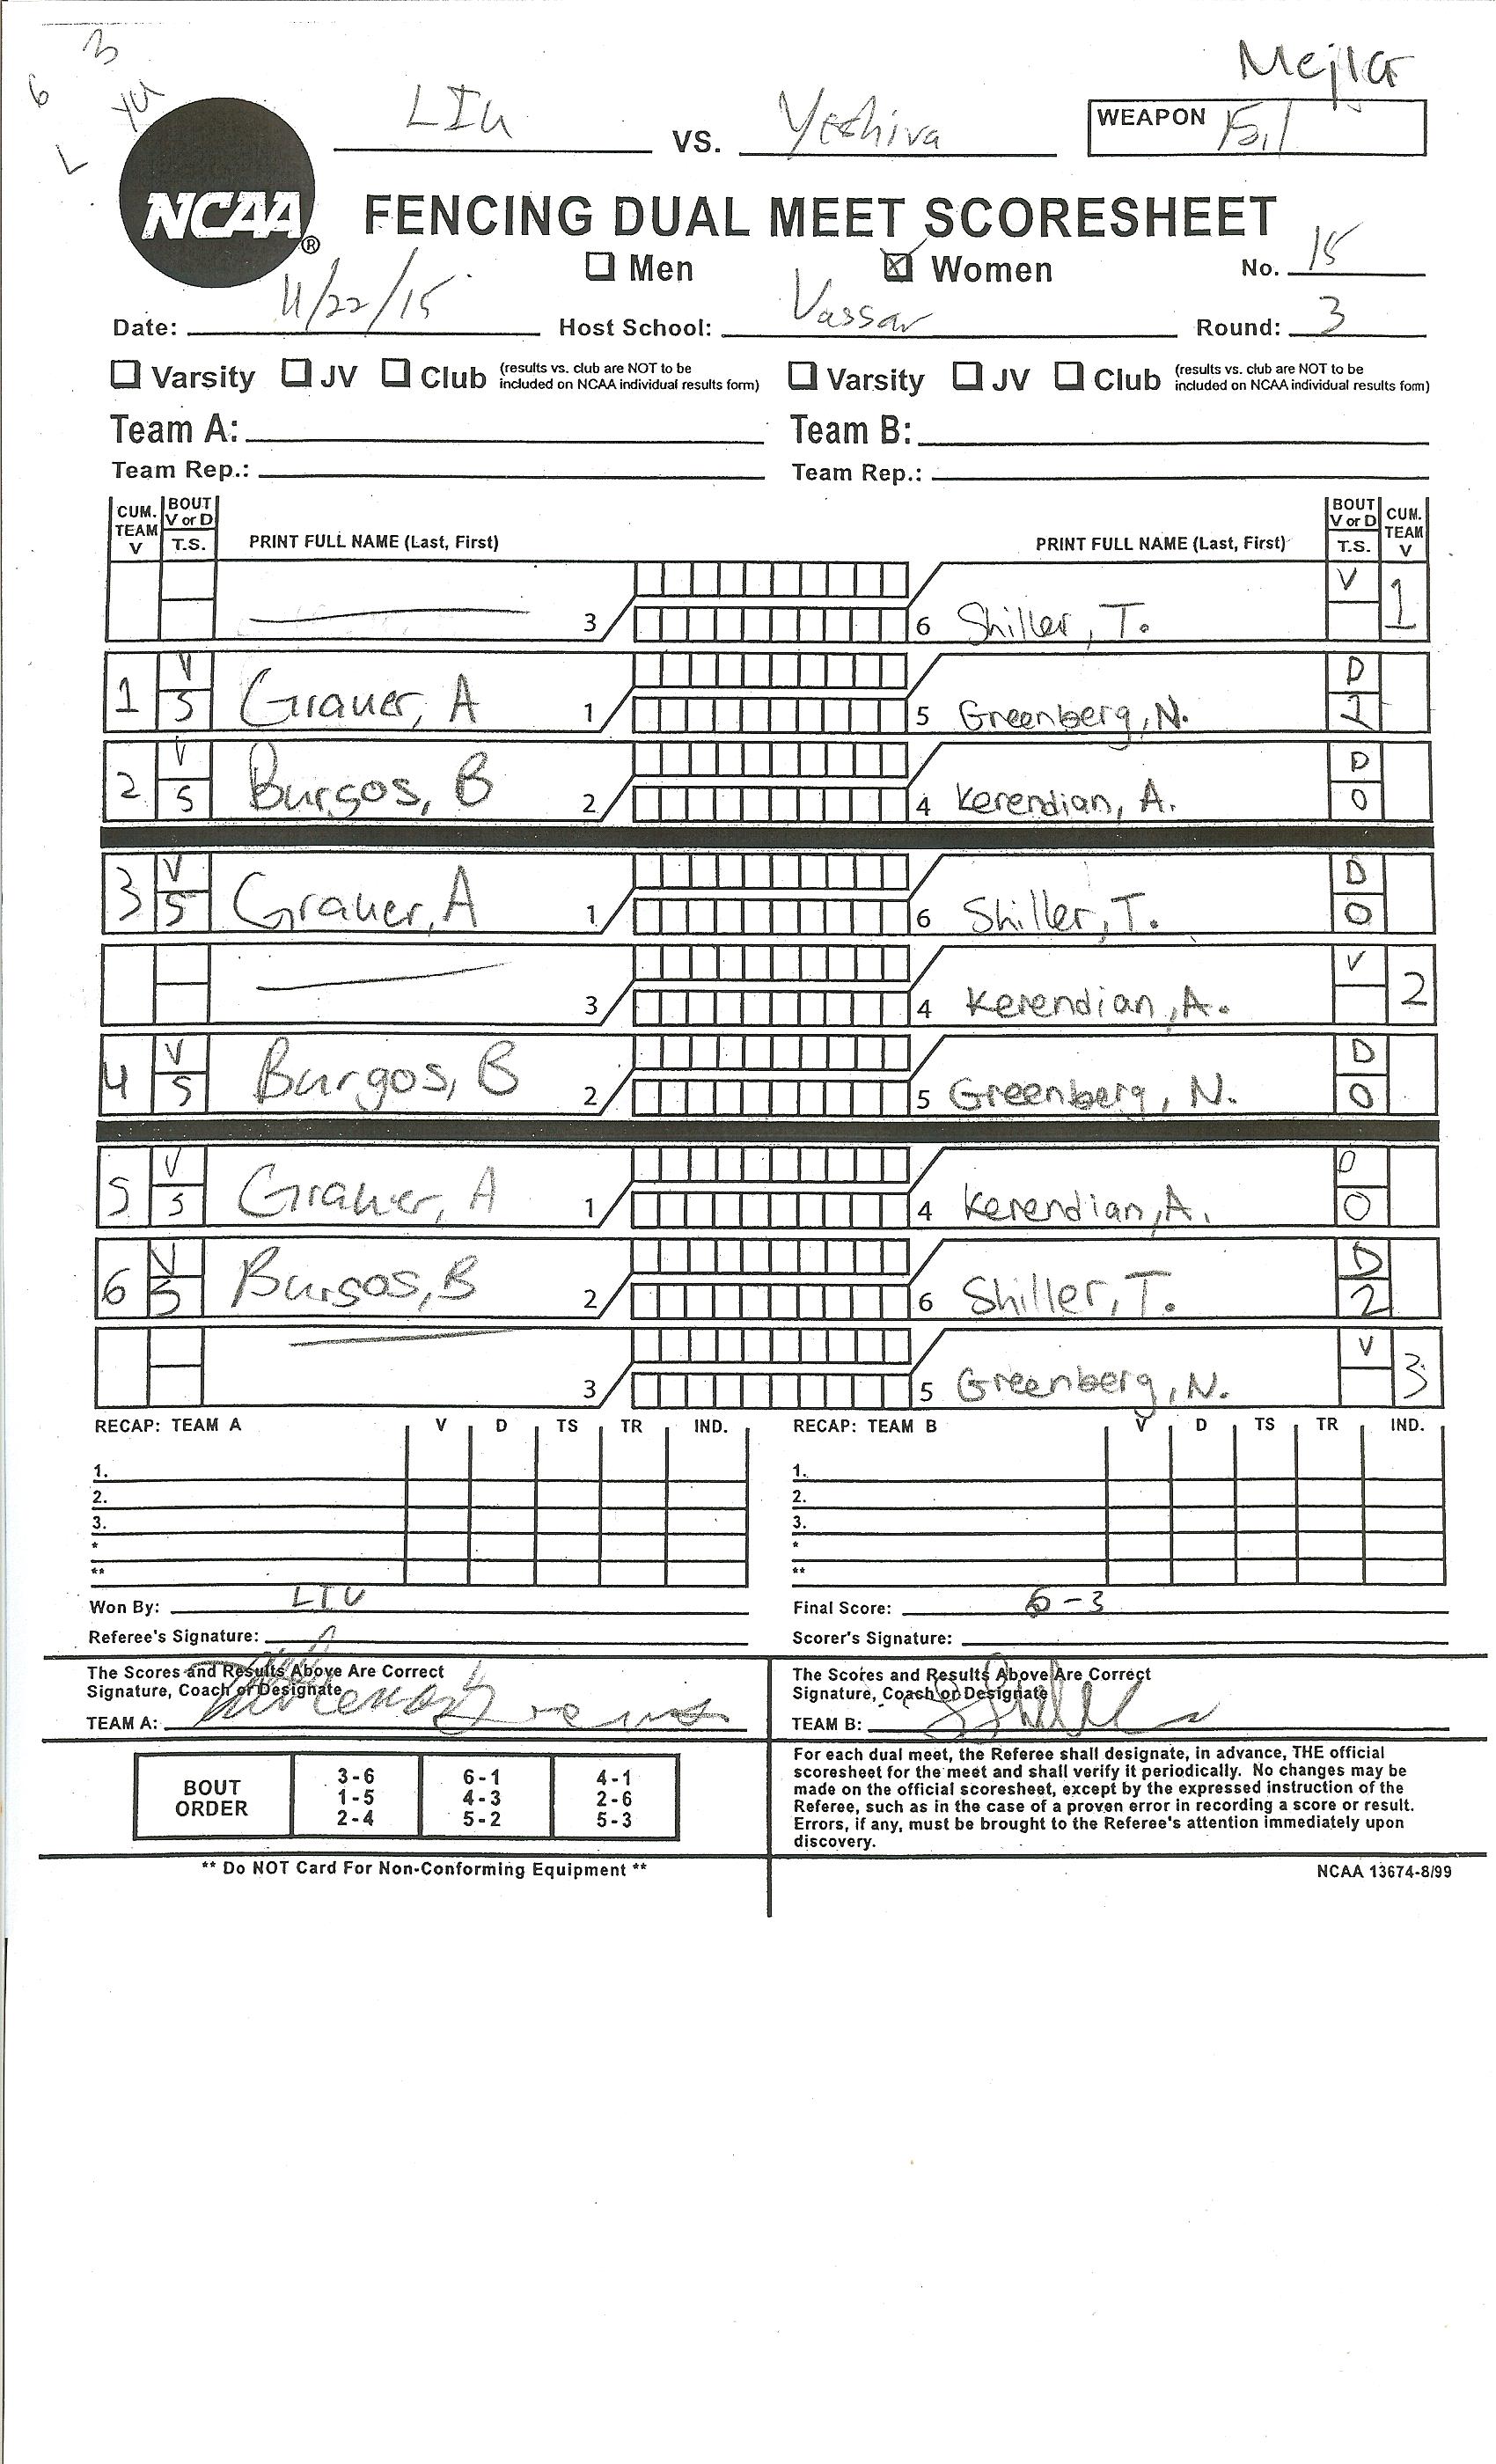 3
6 YU
L
Mejla
LIU VS. Yeshiva WEAPON Foil
NCAA ®
FENCING DUAL MEET SCORESHEET
Men Women No. 15
Date: 11/22/15 Host School: Vassar Round: 3
Varsity JV Club (results vs. club are NOT to be included on NCAA individual results form) Varsity JV Club (results vs. club are NOT to be included on NCAA individual results form)
Team A: Team B:
Team Rep.: Team Rep.:
CUM. TEAM V BOUT V or D T.S. PRINT FULL NAME (Last, First) PRINT FULL NAME (Last, First) BOUT V or D T.S. CUM. TEAM V
3 6 Shiller, T. V 1
1 V 5 Grauer, A 1 5 Greenberg, N. D 2
2 V 5 Burgos, B 2 4 Kerendian, A. D 0
3 V 5 Grauer, A 1 6 Shiller, T. D 0
3 4 Kerendian, A. V 2
4 V 5 Burgos, B 2 5 Greenberg, N. D 0
5 V 5 Grauer, A 1 4 Kerendian, A. D 0
6 V 5 Burgos, B 2 6 Shiller, T. D 2
3 5 Greenberg, N. V 3
RECAP: TEAM A V D TS TR IND. RECAP: TEAM B V D TS TR IND.
1. 1.
2. 2.
3. 3.
* *
** **
Won By: LIU Final Score: 6-3
Referee's Signature: Scorer's Signature:
The Scores and Results Above Are Correct The Scores and Results Above Are Correct
Signature, Coach or Designate Signature, Coach or Designate
TEAM A: TEAM B:
BOUT ORDER
3-6 6-1 4-1
1-5 4-3 2-6
2-4 5-2 5-3
For each dual meet, the Referee shall designate, in advance, THE official
scoresheet for the meet and shall verify it periodically. No changes may be
made on the official scoresheet, except by the expressed instruction of the
Referee, such as in the case of a proven error in recording a score or result.
Errors, if any, must be brought to the Referee's attention immediately upon
discovery.
** Do NOT Card For Non-Conforming Equipment ** NCAA 13674-8/99